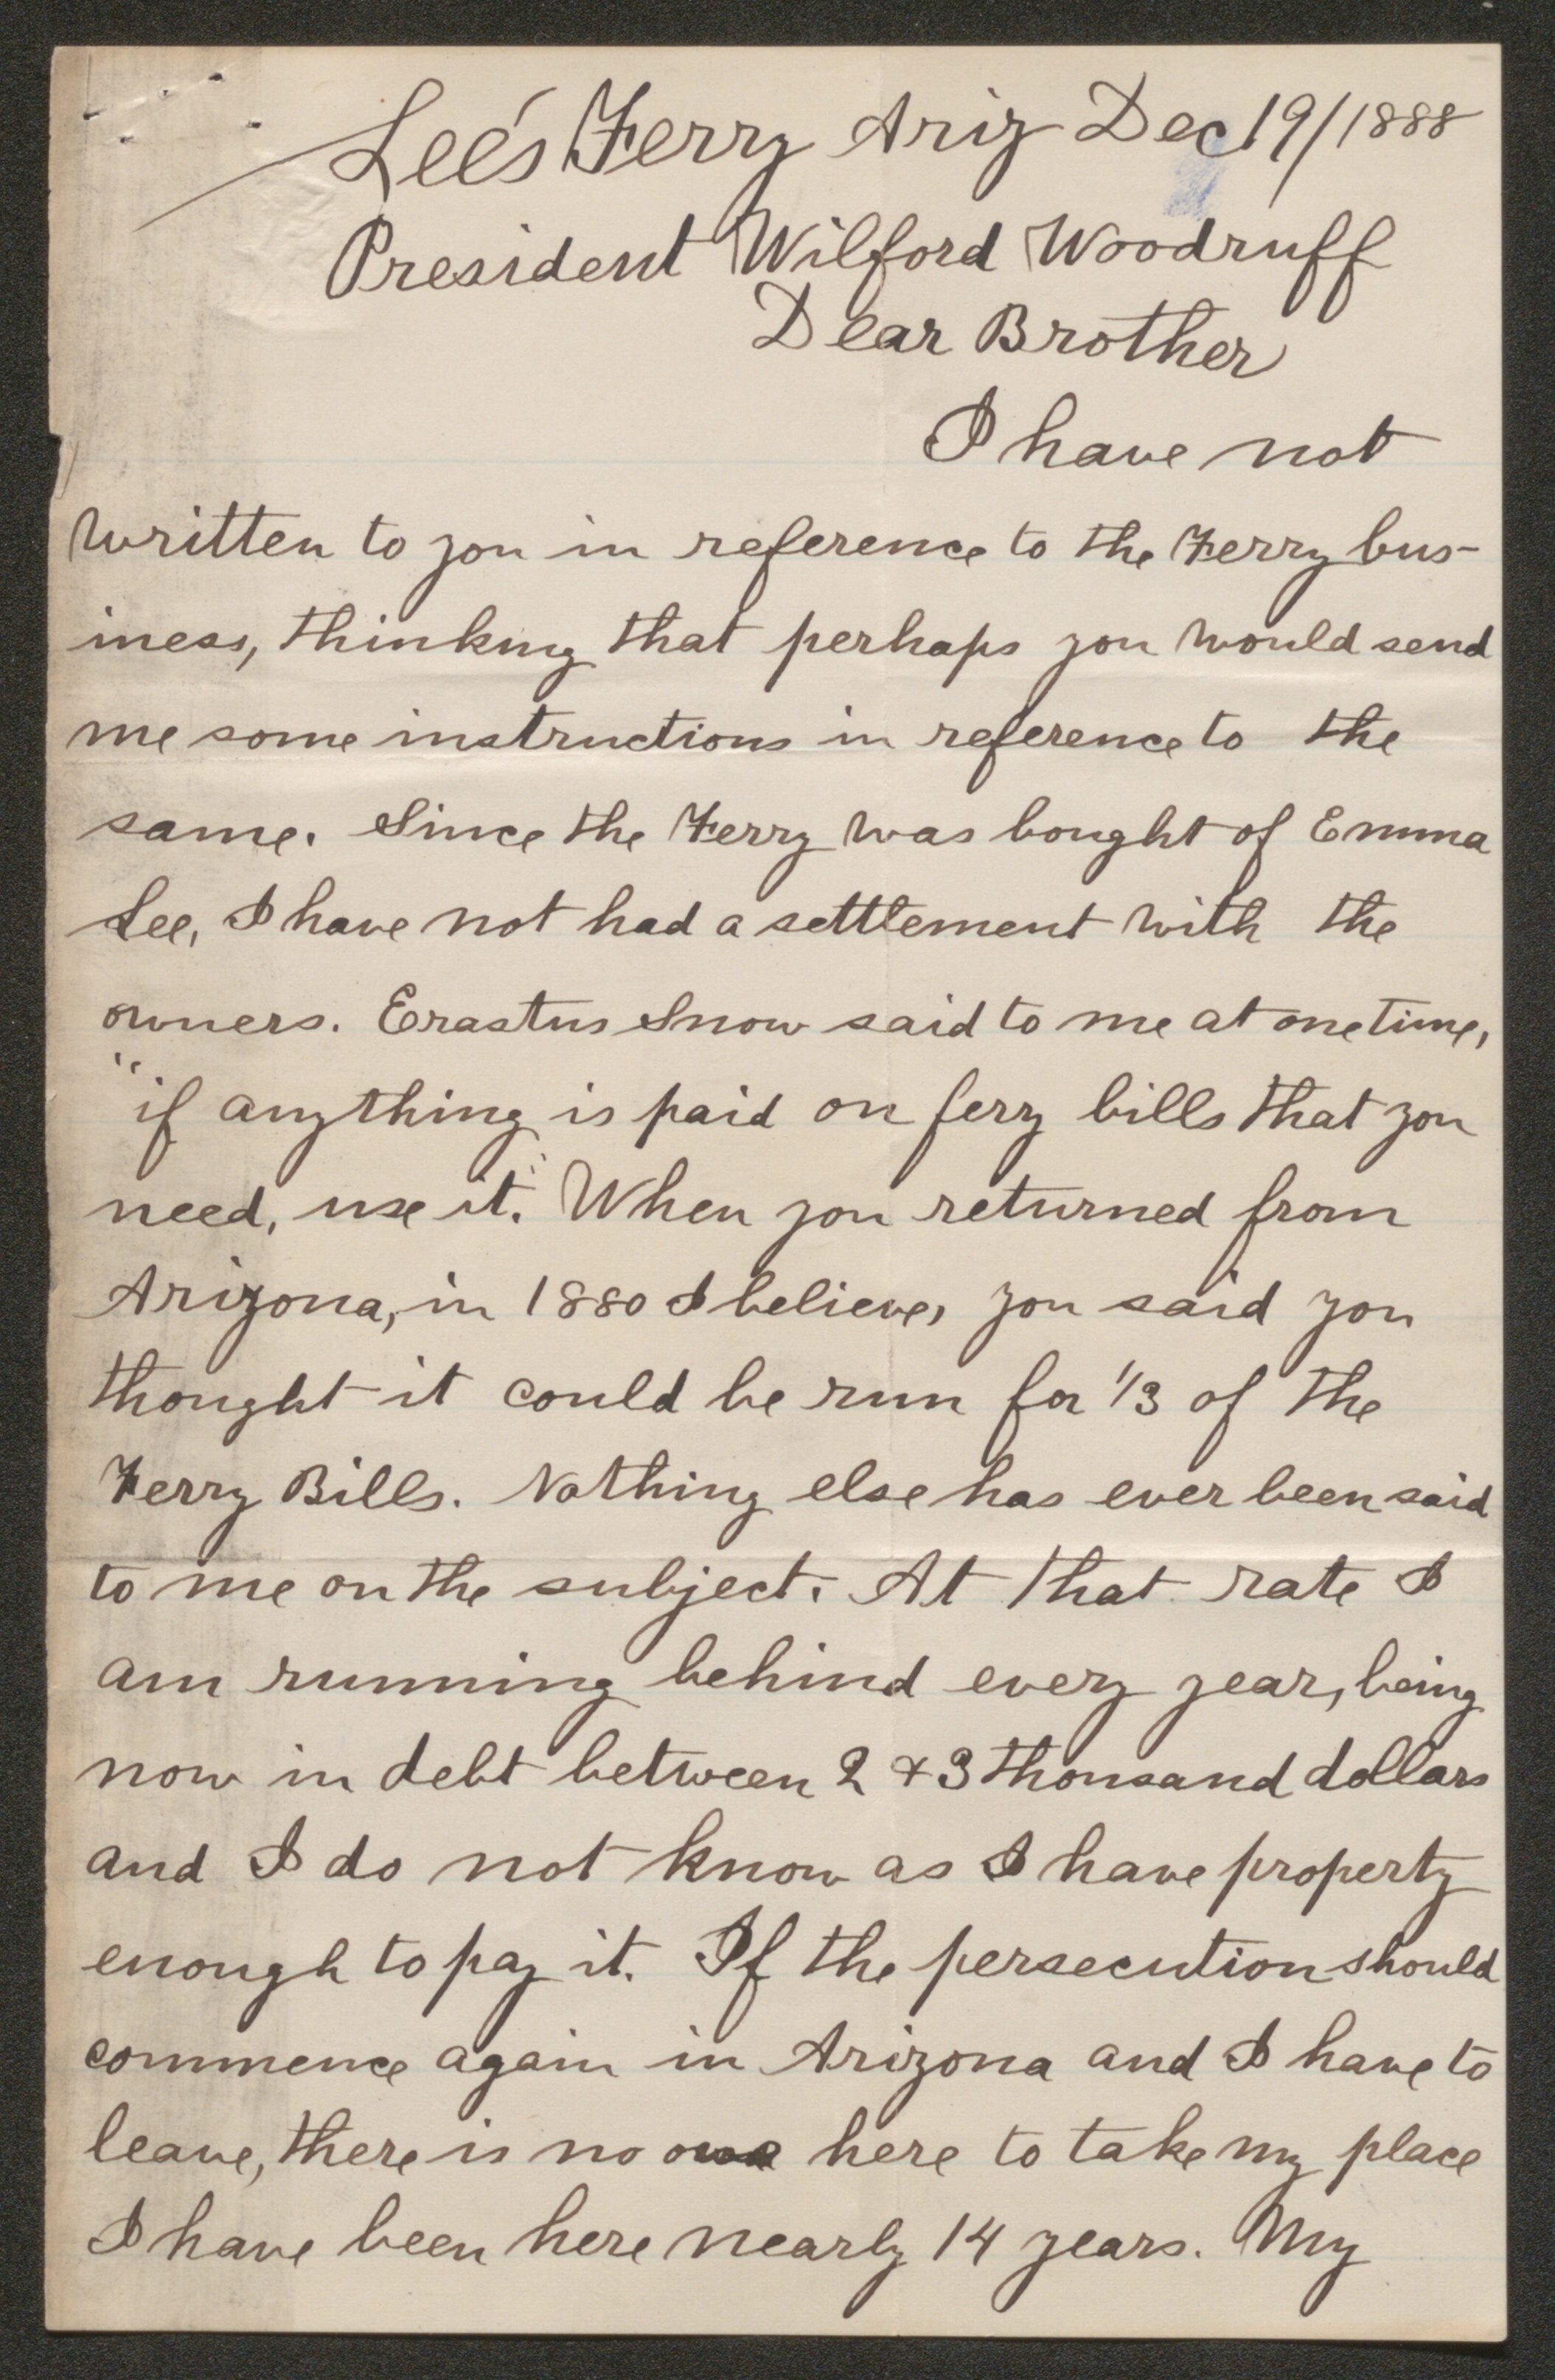 Lee's Ferry Ariz Dec 19/1888
President Wilford Woodruff
Dear Brother
I have not
written to you in reference to the Ferry bus-
iness, thinking that perhaps you would send
me some instructions in reference to the
same. Since the Ferry was bought of Emma
Lee, I have not had a settlement with the
owners. Erastus Snow said to me at one time,
"if anything is paid on fery bills that you
need, use it." When you returned from
Arizona, in 1880 I believe, you said you
thought it could be run for 1/3 of the
Ferry Bills. Nothing else has ever been said
to me on the subject. At that rate I
am running behind every year, being
now in debt between 2 & 3 thousand dollars
and I do not know as I have property
enough to pay it. If the persecution should
commence again in Arizona and I have to
leave, there is no one here to take my place
I have been here nearly 14 years. My